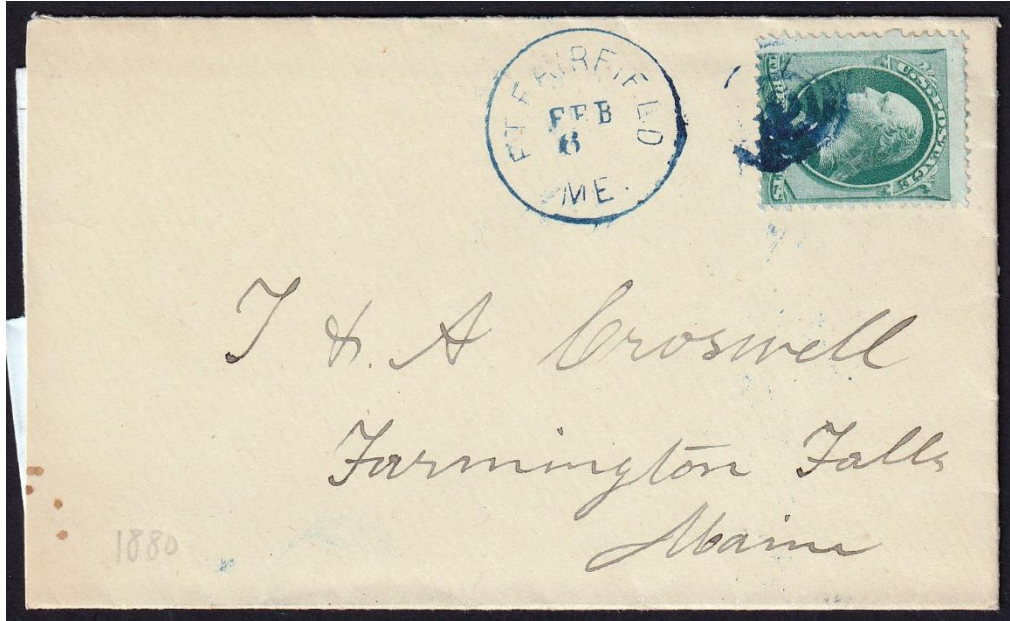 FT. FAIRFIELD
FEB
6
ME.
U.S. POSTAGE
T & A Croswell
Farmington Falls
Maine
1880